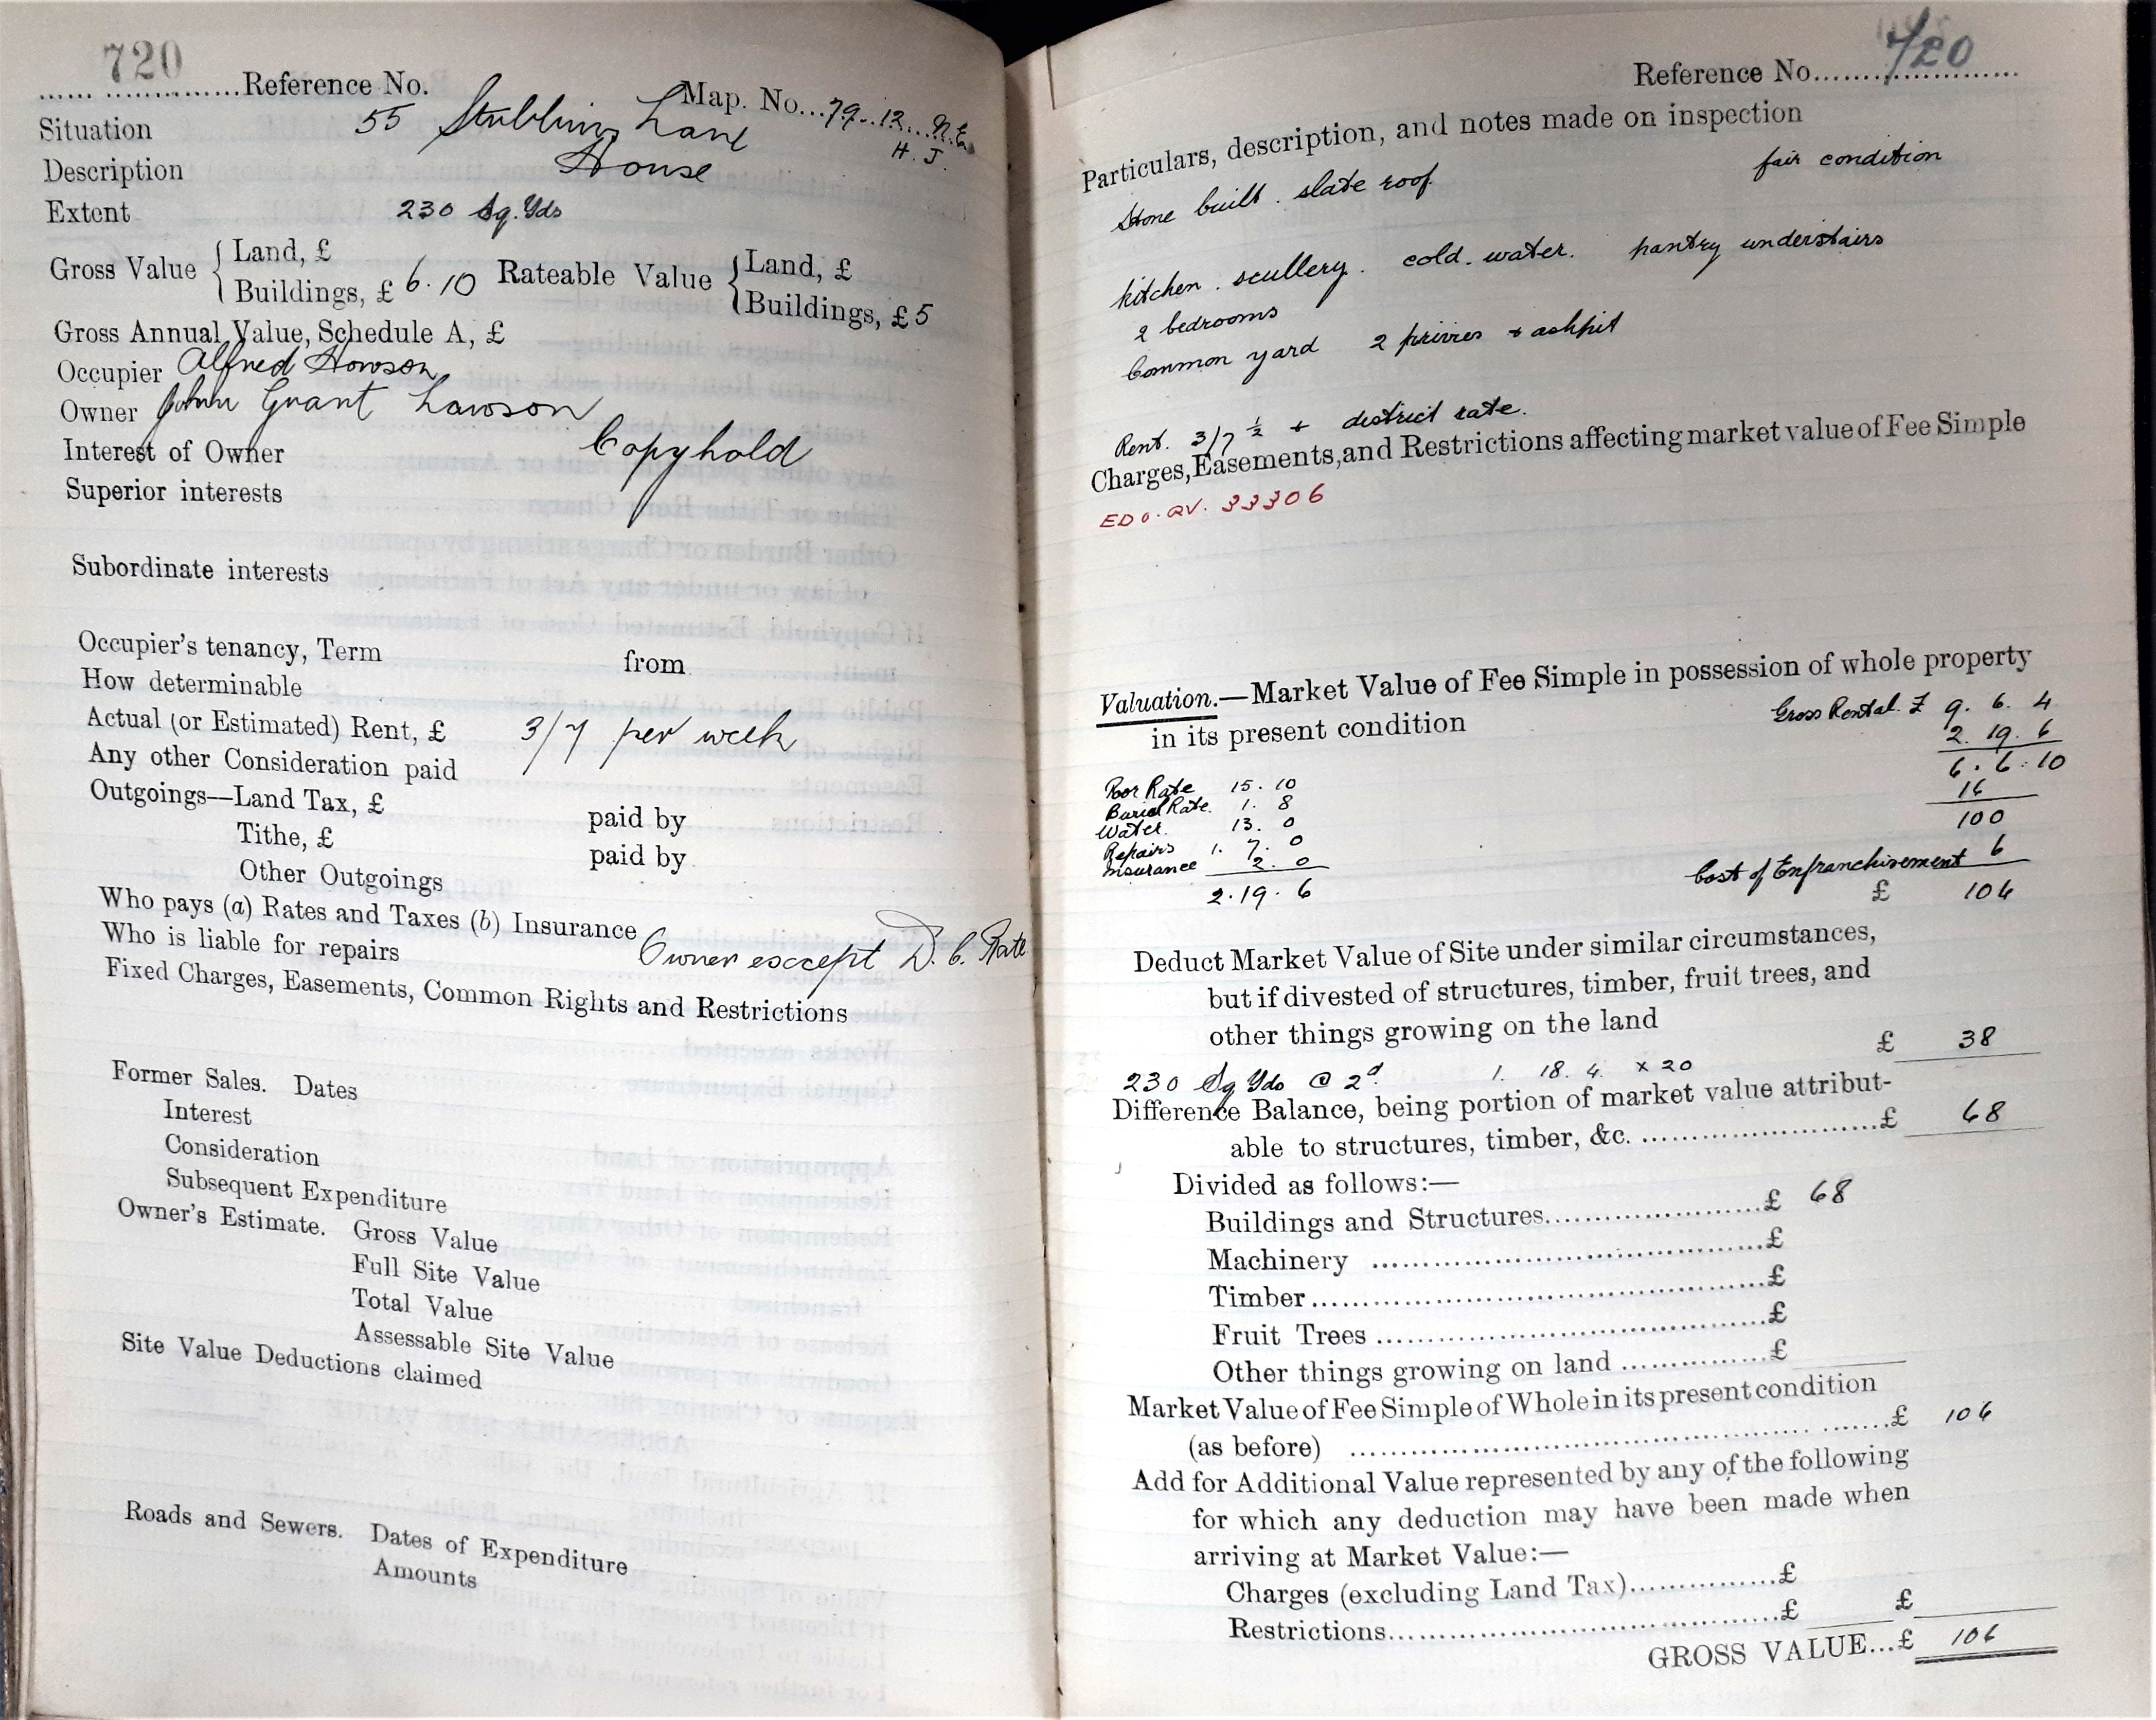 720
...... ..............Reference No. Map. No...79..12...N.E.
H. J
Situation 55 Stubbing Lane
Description House
Extent 230 Sq. Yds
Gross Value { Land, £ Rateable Value { Land, £
Buildings, £ 6.10 Buildings, £ 5
Gross Annual Value, Schedule A, £
Occupier Alfred Howson
Owner John Grant Lawson
Interest of Owner Copyhold
Superior interests
Subordinate interests
Occupier's tenancy, Term from
How determinable
Actual (or Estimated) Rent, £ 3/7 per week
Any other Consideration paid
Outgoings—Land Tax, £ paid by
Tithe, £ paid by
Other Outgoings
Who pays (a) Rates and Taxes (b) Insurance
Who is liable for repairs Owner except D. C. Rate
Fixed Charges, Easements, Common Rights and Restrictions
Former Sales. Dates
Interest
Consideration
Subsequent Expenditure
Owner's Estimate. Gross Value
Full Site Value
Total Value
Assessable Site Value
Site Value Deductions claimed
Roads and Sewers. Dates of Expenditure
Amounts
720
Reference No.....................
Particulars, description, and notes made on inspection
Stone built. slate roof. fair condition
kitchen. scullery. cold. water. pantry understairs
2 bedrooms
Common yard 2 privies + ashpit
Rent. 3/7 ½ + district rate.
Charges, Easements, and Restrictions affecting market value of Fee Simple
33306
Valuation.—Market Value of Fee Simple in possession of whole property
in its present condition Gross Rental. £ 9. 6. 4
2. 19. 6
6. 6. 10
16
100
Poor Rate 15. 10
Burial Rate. 1. 8
Water. 13. 0
Repairs 1. 7. 0
Insurance 2. 0
2. 19. 6
Cost of Enfranchisement 6
£ 106
Deduct Market Value of Site under similar circumstances,
but if divested of structures, timber, fruit trees, and
other things growing on the land £ 38
230 Sq Yds @ 2d. 1. 18. 4. x 20
Difference Balance, being portion of market value attribut-
able to structures, timber, &c. ..............................£ 68
Divided as follows:—
Buildings and Structures..........................£ 68
Machinery ..............................................£
Timber.....................................................£
Fruit Trees ..............................................£
Other things growing on land ..................£
Market Value of Fee Simple of Whole in its present condition
(as before) ..........................................................£ 106
Add for Additional Value represented by any of the following
for which any deduction may have been made when
arriving at Market Value:—
Charges (excluding Land Tax)..................£
Restrictions...............................................£ £
GROSS VALUE...£ 106